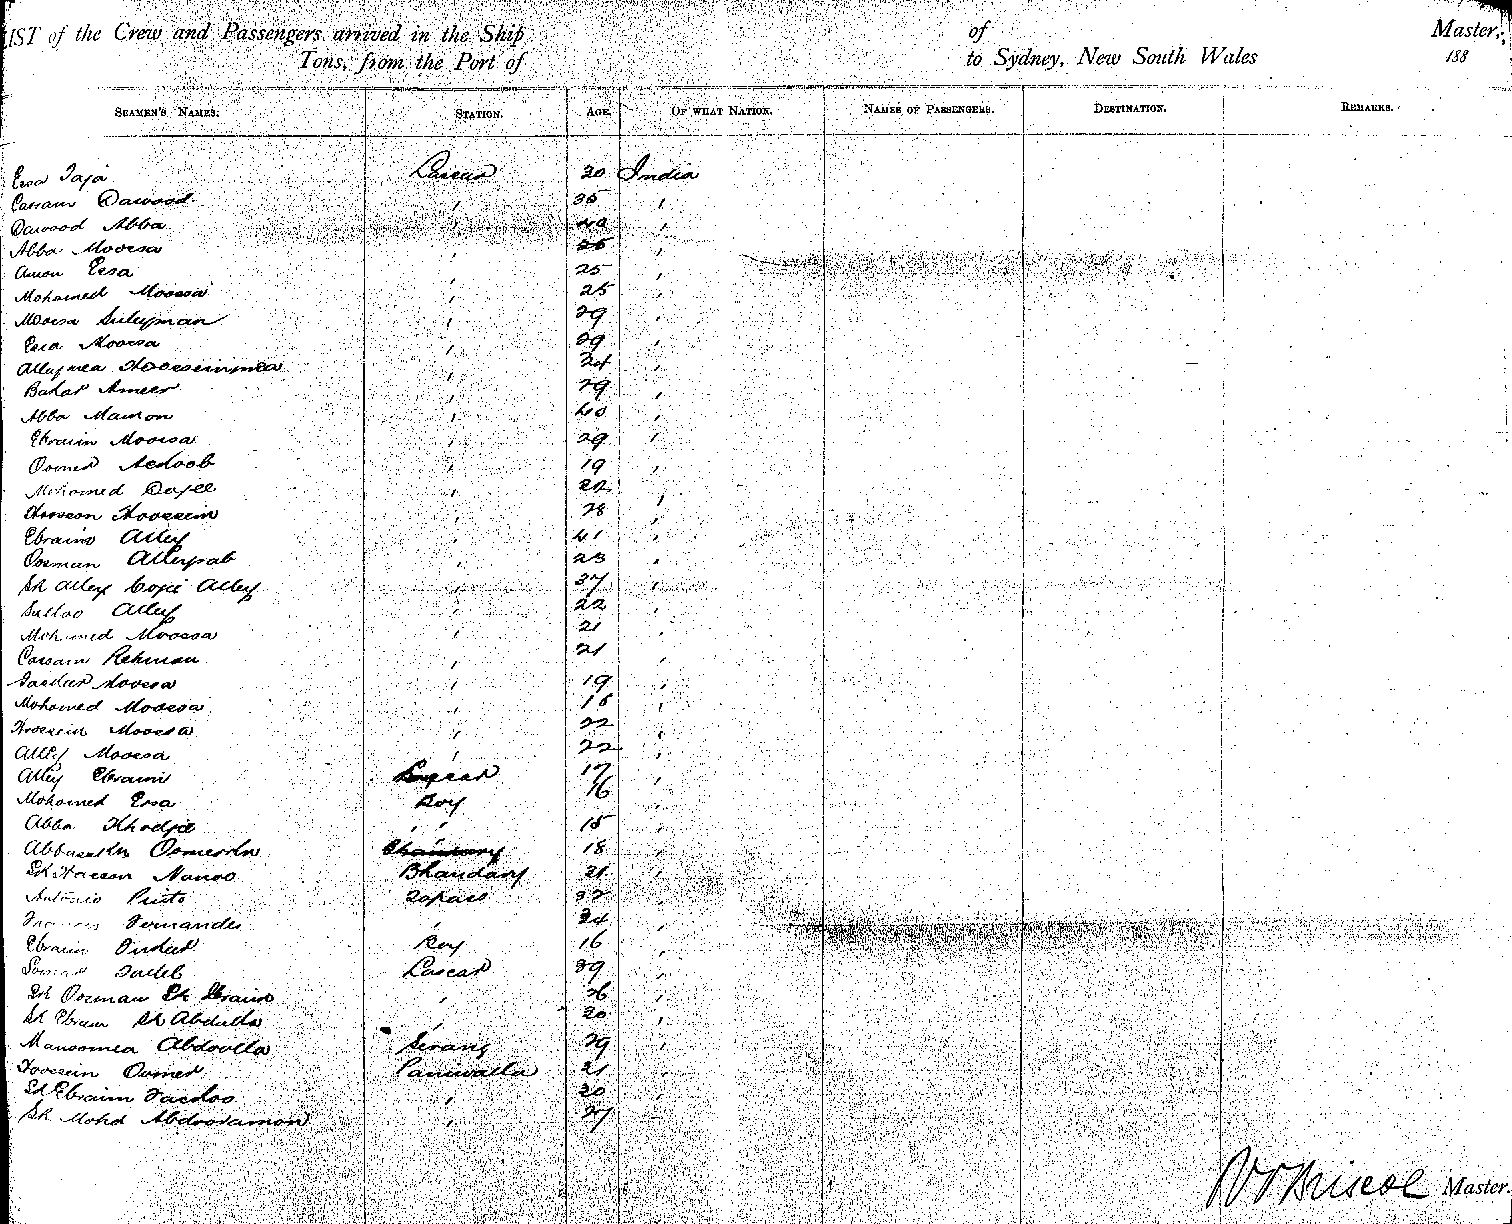 LIST of the Crew and Passengers, arrived in the Ship of Master,
Tons, from the Port of to Sydney, New South Wales 188
SEAMEN'S NAMES. STATION. AGE. OF WHAT NATION. NAMES OF PASSENGERS. DESTINATION. REMARKS.
Essa Jaja Lascar 20 India
Cassam Dawood 35 "
Dawood Abba " 40 "
Abba Moossa " 25 "
Amon Eesa " 25 "
Mohamed Moossa " 25 "
Moossa Suleyman " 29 "
Essa Moossa " 29 "
Alleymea Hoosseinmea " 24 "
Bakar Ameer " 29 "
Abba Mamon " 40 "
Ebraim Moossa " 29 "
Oomer Acdoob " 19 "
Mohomed Dajee " 22 "
Hoosson Hoossein " 28 "
Ebraim Alley " 41 "
Oosman Alleysab " 23 "
Sk Alley Alley " 37 "
Alley " 22 "
Mohamed Moossa " 21 "
Cassam Rehman " 21 "
Moossa " 19 "
Mohomed Moossa " 18 "
Hoossein Moossa " 22 "
Alley Moossa " 22 "
Alley Ebraim Lascar 17 "
Mohomed Essa Boy 16 "
Abba Khodja " " 15 "
Oomerdin 18 "
Sk Hassan Nanoo Bhandary 21 "
Antonio Pinto Topass 32 "
Fernandes " 24 "
Ebraim Boy 16 "
Lascar 39 "
Sk Oosman Sk Ebraim " 26 "
Sk Ebraim Sk Abdulla " 20 "
Mansoomea Abdoolla Serang 29 "
Hoossein Oomer Paniwalla 21 "
Sk Ebraim " 20 "
Sk Mohd Abdooramon " 27 "
Briscoe Master.